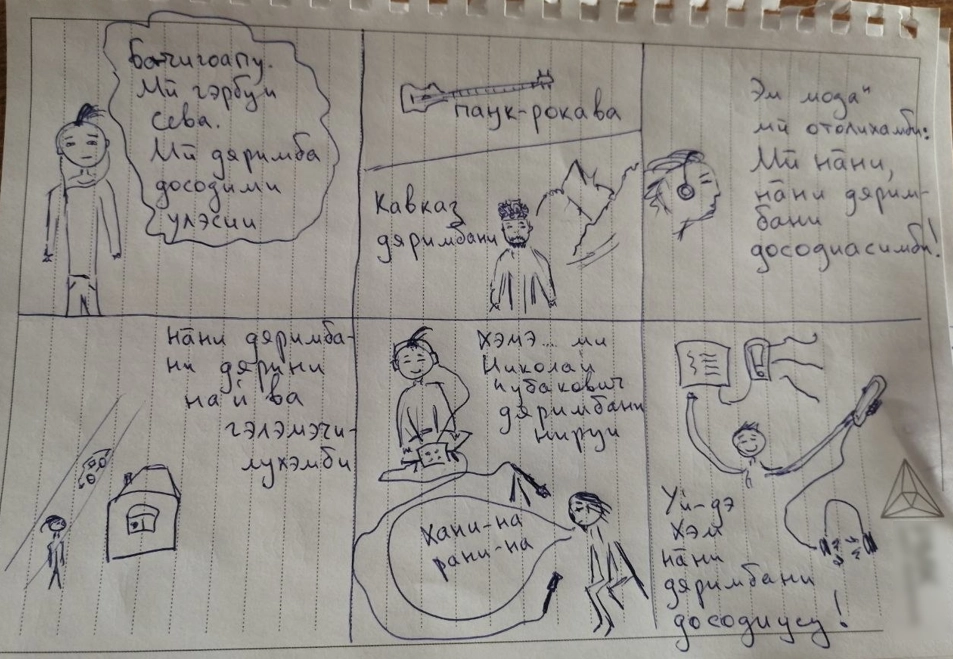 Бачигоапу.
Мӣ гэрбуи
Сева.
Мӣ дяримба
досодими
улэсии
паук-рокава
Кавказ
дяримбани
Эм модаⁿ
мӣ отолихамби:
Мӣ на̄ни,
на̄ни дярим-
бани
досодиасимби!
на̄ни дяримба-
ни дярини
най ва
гэлэмэчи-
лухэмби
Хэмэ... ми
Николай
Кубакович
дяримбани
нируи
Хани-на
рани-на
Уй-дэ
хэм
на̄ни
дяримбани
досодиусу!